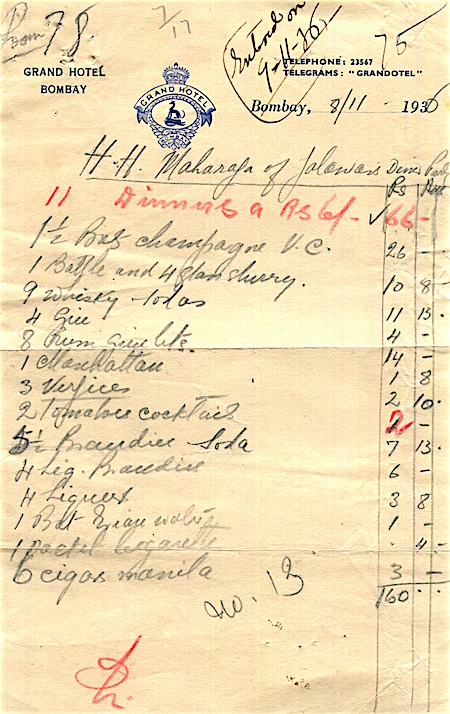 Room 78
7/17
75
Entered on
9-11-36
GRAND HOTEL
BOMBAY
GRAND HOTEL
TELEPHONE: 23567
TELEGRAMS: "GRANDOTEL"
Bombay, 8/11 1936
H.H. Maharaja of Jalawars Dinner Party
Rs
11 Dinners a Rs 6/- ✓ 66 -
1½ Bot champagne V.C. 26 -
1 Bottle and 4 glass sherry. 10 8
9 Whisky Sodas 11 13
4 Gin 4 -
8 Rum gimlets 14 -
1 Manhattan 1 8
3 2 10
2 Tomatoe cocktails 2 -
5½ Brandies Soda 7 13
4 Liq. Brandies 6 -
4 Liqueurs 3 8
1 Bot 1 -
1 Packet Cigarette 4
6 cigars manila 3 -
160
No. 13